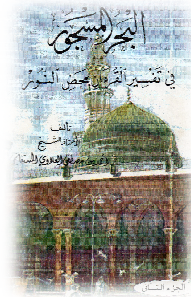 البحر المسجور
في تفسير القرءان بمحض النور
تأليف
الأستاذ الشيخ
العلاوي
الجزء الثاني